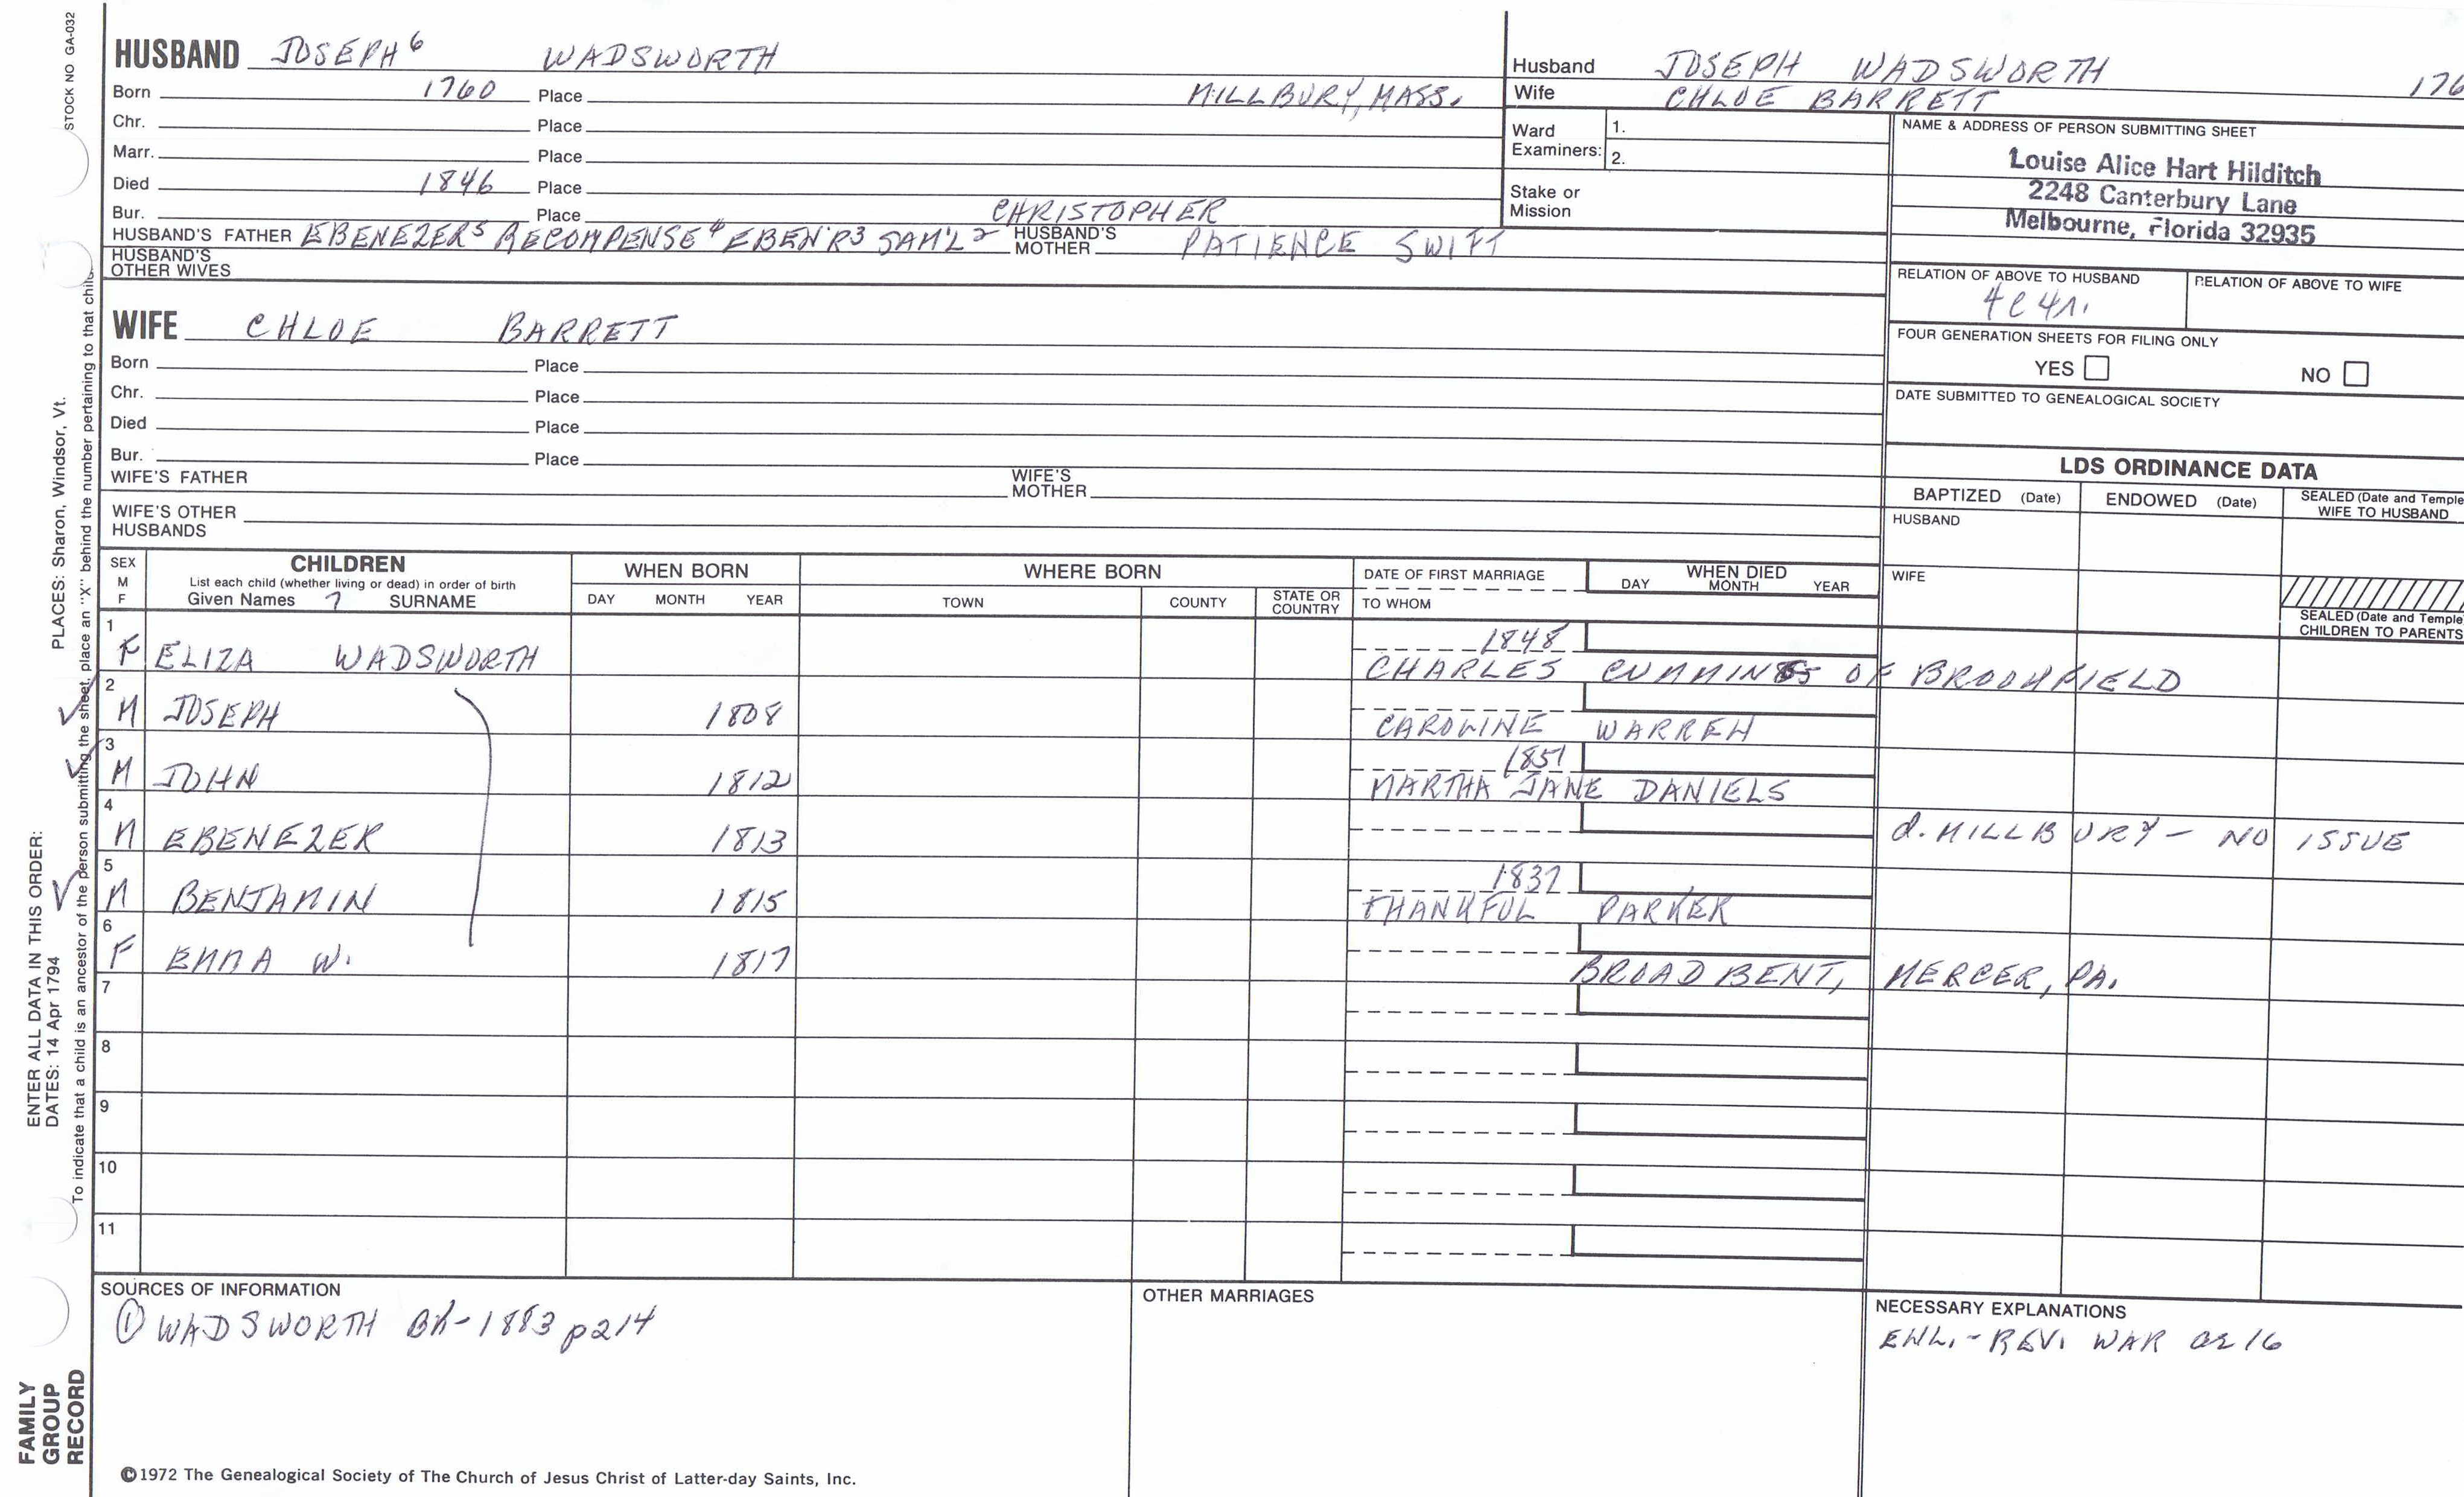 STOCK NO GA-032
HUSBAND JOSEPH⁶ WADSWORTH
Born 1760 Place MILLBURY, MASS.
Chr. Place
Marr. Place
Died 1846 Place
Bur. Place
CHRISTOPHER
HUSBAND'S FATHER EBENEZER⁵ RECOMPENSE⁴ EBEN'R³ SAM'L² HUSBAND'S MOTHER PATIENCE SWIFT
HUSBAND'S OTHER WIVES
Husband JOSEPH WADSWORTH 176
Wife CHLOE BARRETT
Ward Examiners: 1.
2.
Stake or Mission
NAME & ADDRESS OF PERSON SUBMITTING SHEET
Louise Alice Hart Hilditch
2248 Canterbury Lane
Melbourne, Florida 32935
RELATION OF ABOVE TO HUSBAND RELATION OF ABOVE TO WIFE
4C4r.
FOUR GENERATION SHEETS FOR FILING ONLY
YES NO
DATE SUBMITTED TO GENEALOGICAL SOCIETY
WIFE CHLOE BARRETT
Born Place
Chr. Place
Died Place
Bur. Place
WIFE'S FATHER WIFE'S MOTHER
WIFE'S OTHER HUSBANDS
LDS ORDINANCE DATA
BAPTIZED (Date) ENDOWED (Date) SEALED (Date and Temple
WIFE TO HUSBAND
HUSBAND
WIFE
SEALED (Date and Temple
CHILDREN TO PARENTS
SEX M F
CHILDREN
List each child (whether living or dead) in order of birth
Given Names 7 SURNAME
WHEN BORN
DAY MONTH YEAR
WHERE BORN
TOWN COUNTY STATE OR COUNTRY
DATE OF FIRST MARRIAGE
TO WHOM
WHEN DIED
DAY MONTH YEAR
1 F ELIZA WADSWORTH 1848
CHARLES CUMMINGS OF BROOKFIELD
2 M JOSEPH 1808
CAROLINE WARREN
3 M JOHN 1812 1851
MARTHA JANE DANIELS
4 M EBENEZER 1813 d. MILLBURY - NO ISSUE
5 M BENJAMIN 1815 1837
THANKFUL PARKER
6 F EMMA W. 1817
BROADBENT, MERCER, PA.
7
8
9
10
11
SOURCES OF INFORMATION
① WADSWORTH BK-1883 p214
OTHER MARRIAGES
NECESSARY EXPLANATIONS
ENL. - REV. WAR 16
©1972 The Genealogical Society of The Church of Jesus Christ of Latter-day Saints, Inc.
FAMILY GROUP RECORD
ENTER ALL DATA IN THIS ORDER:
DATES: 14 Apr 1794 PLACES: Sharon, Windsor, Vt.
To indicate that a child is an ancestor of the person submitting the sheet, place an "X" behind the number pertaining to that child.